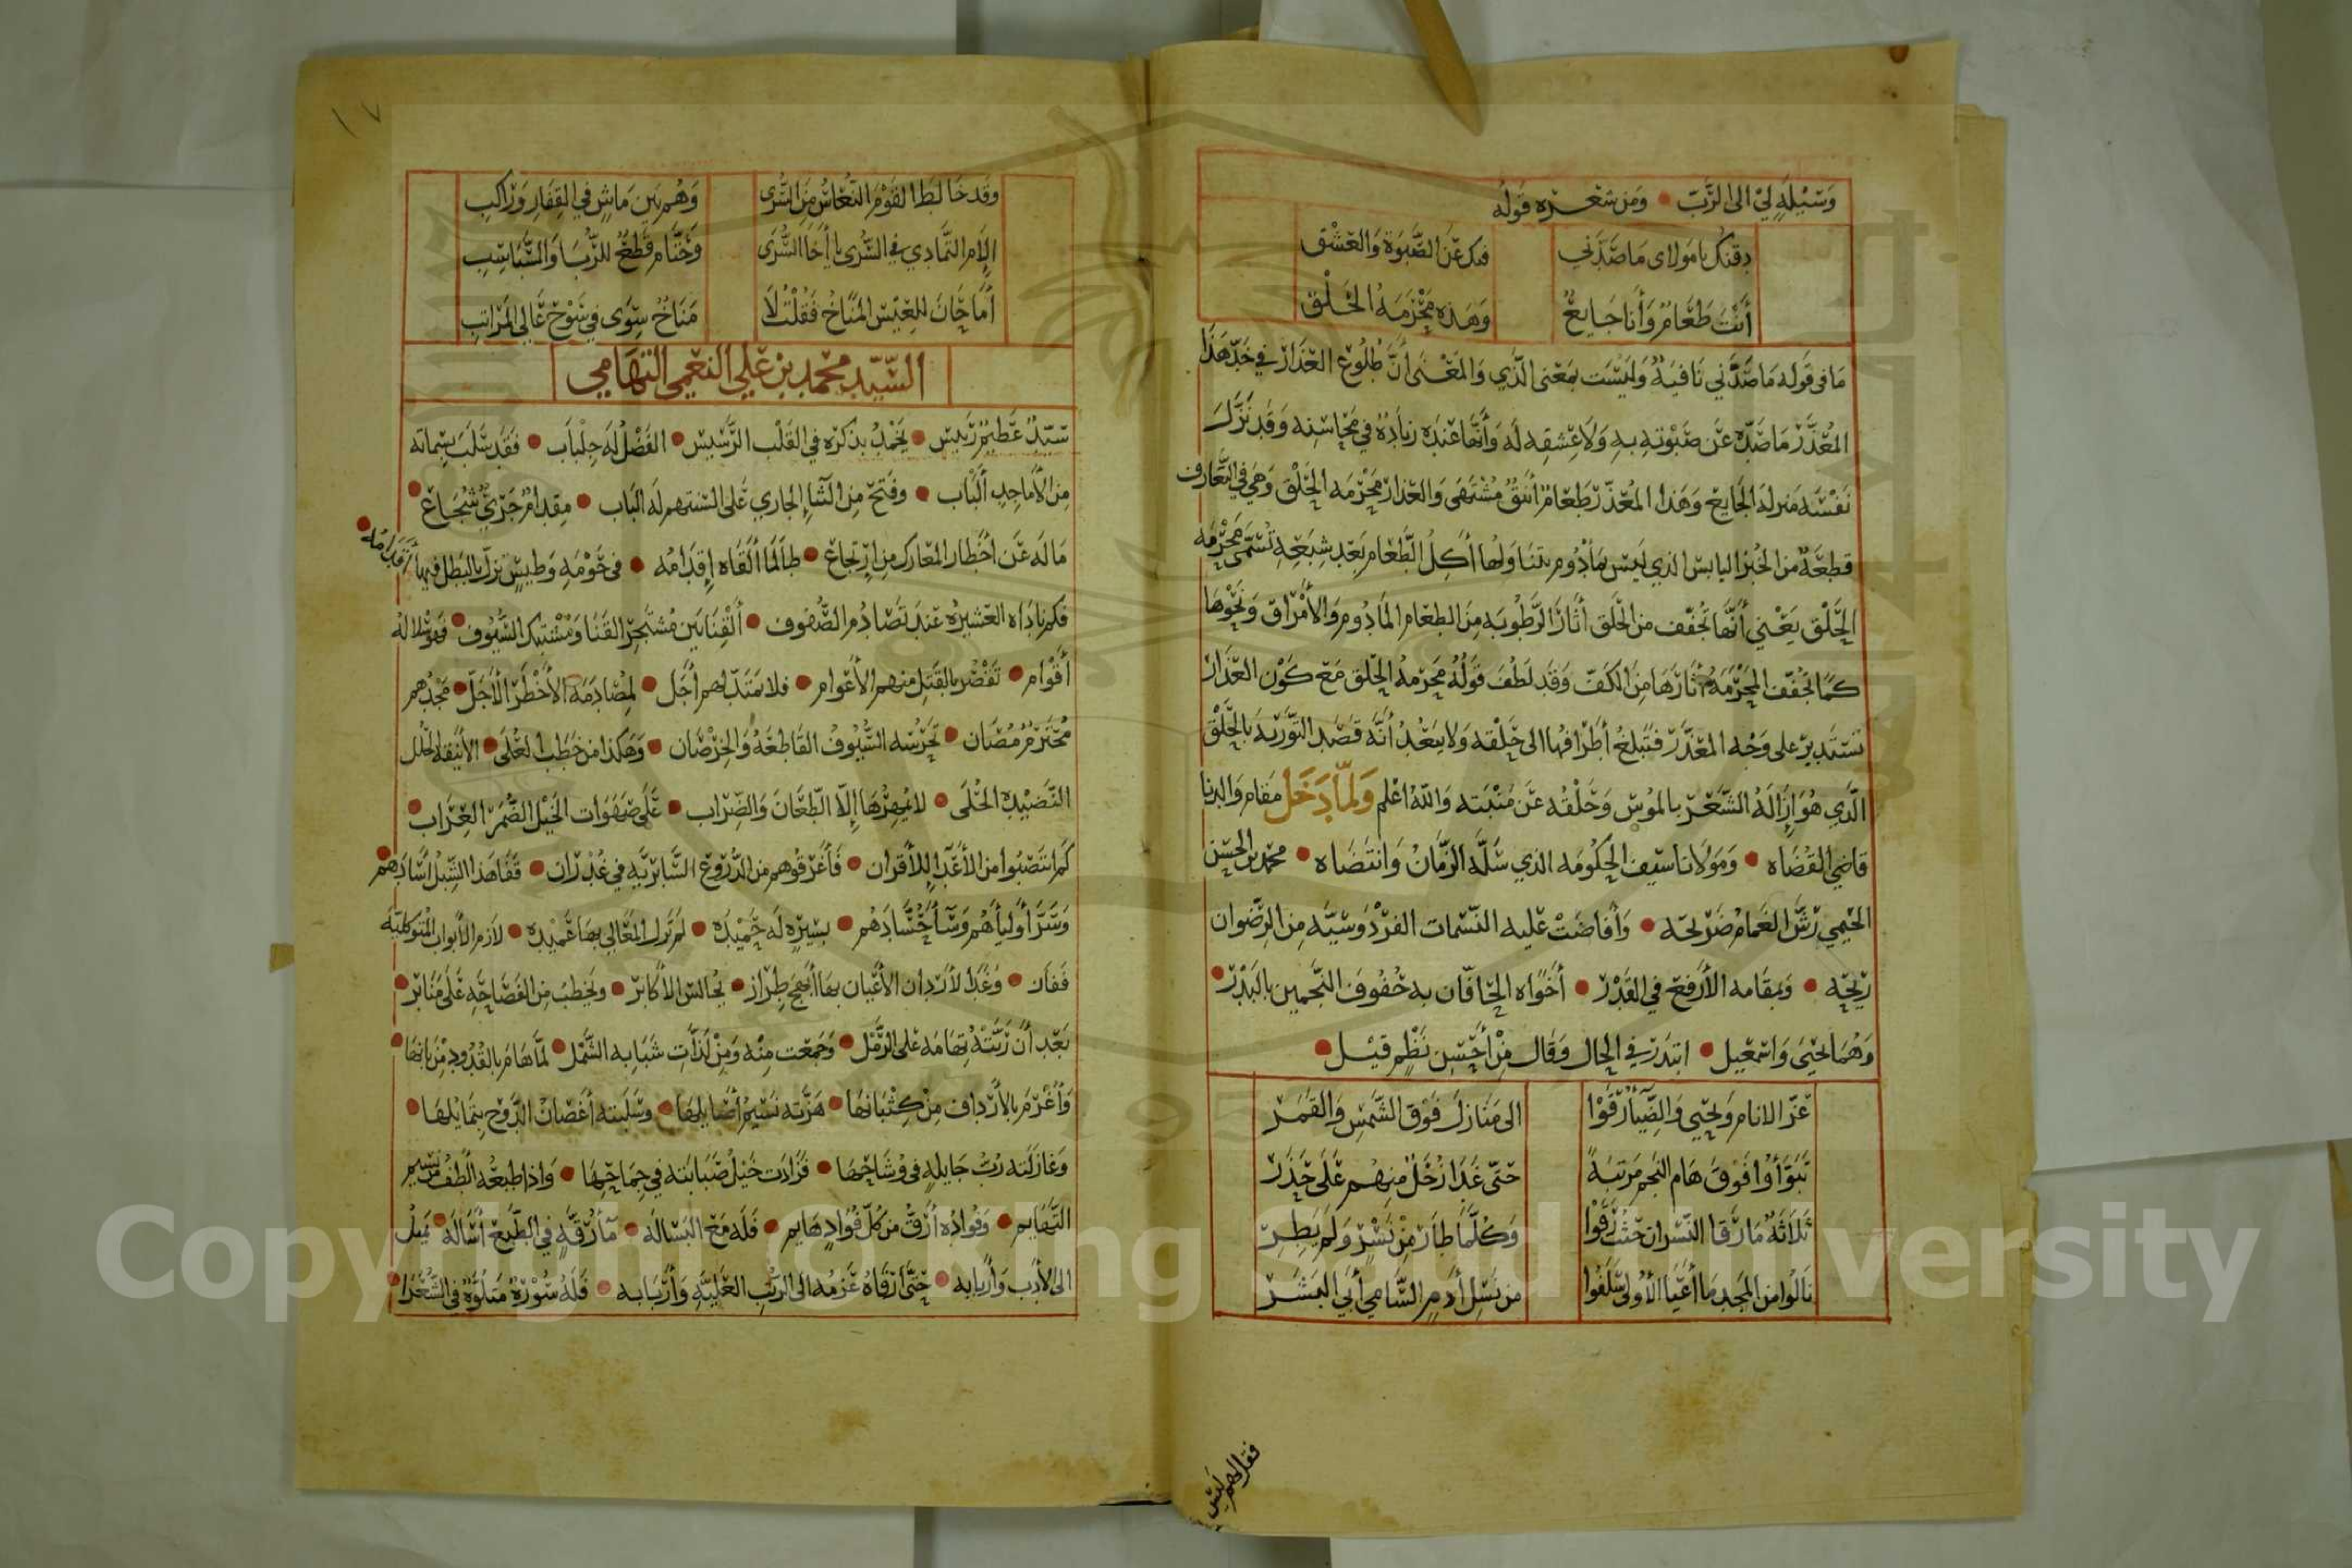 وسيلة لي الى الرب • ومن شعره قوله
دقنك يا مولاى ما صدني
فيك عن الصبوة والعشق
أنت طعام وأنا جايع
وهذه محرمة الحلق
ما فى قوله ما صدني نافية وليست بمعنى الذي والمعنى ان طلوع العذار في خد هذا
المعذر ما صده عن صبوته به ولا عشقه له وأنها عنده زيادة في محاسنه وقد نزل
نفسه منزلة الجايع وهذا المعذر طعام أنيق مشتهى والعذار محرمة الحلق وهي في التعارف
قطعة من الخبز اليابس الذي ليس بمأدوم يتناولها أكل الطعام بعد شبعه تسمى محرمة
الحلق يعني أنها تجفف من الحلق أثار الرطوبة من الطعام المأدوم والأمراق ونحوها
كما تجفف المحرمة أثارها من الكف وقد لطف قوله محرمة الحلق مع كون العذار
تستدير على وجه المعذر فتبلغ أطرافها الى حلقه ولا يبعد أنه قصد التورية بالحلق
الذي هو ازالة الشعر بالموس وحلقه عن منبته والله اعلم ولما دخل مقام والدنا
قاضي القضاه • ومولانا سيف الحكومة الذي سله الزمان وانتضاه • محمد بن الحسن
الحيمي رش الغمام ضريحه • وأفاضت عليه النسمات الفردوسية من الرضوان
ريحه • وبمقامه الأرفع في القدر • أخواه الحافان به حفوف النجمين بالبدر •
وهما يحيى واسمعيل • ابتدر في الحال وقال من أحسن نظم قيل •
عز الانام ويحيى والضيا رقوا
الى منازل فوق الشمس والقمر
تبوأوا فوق هام النجم مرتبة
حتى غدا زحل منهم على حذر
ثلاثة ما رقا النسران حيث رقوا
وكلما طار من نسر ولم يطر
نالوا من المجد ما أعيا الأولى سلفوا
من نسل أدم السامي أبي البشر
فقل لهم ليس
١٧
وقد خالط القوم النعاس من السرى
وهم بين ماش في القفار وراكب
الام التمادي في السرى يا أخا السرى
وحتام قطع للربا والسباسب
أما حان للعيس المناخ فقلت لا
مناخ سوى في سوح عالي المراتب
السيد محمد بن علي النعمي التهامي
سيد عظيم رييس • يخمد بذكره في القلب الرسيس • الفضل له جلباب • فقد سلب بسماته
من الأماجد ألباب • وفتح من الثنا الجاري على السنتهم له الباب • مقدام جري شجاع •
ما له عن اخطار المعارك من ارتجاع • طالما ألقاه إقدامه • فى حومة وطيس تزل بالبطل فيها أقدامه •
فكم ناداه العشيرة عند تصادم الصفوف • ألفنا بين مشتجر القنا ومشتبك السيوف •
أقوام • تقصر بالقتل منهم الأعوام • فلا يمتد لهم أجل • لمصادمة الأخطر الأجل • مجدهم
محترم مصان • تحرسه السيوف القاطعة والخرصان • وهكذا من خطب العلى •
النضيدة الحلى • لا يمهرها إلا الطعان والضراب • على صهوات الخيل الضمر العراب •
كم انتصبوا من الأعدا للأقران • فأغرقوهم من الدروع السابرية في غدران • فقفا هذا الشبل أسادهم •
وسر أولياهم وسآ حسادهم • بسيرة له حميدة • لم تزل المعالي بها عميدة • لازم الأبواب المتوكلية
ففاز • وغدا لأردان الأعيان بها أبهج طراز • يجالس الأكابر • ويخطب من الفصاحة على منابر •
بعد أن ربته تهامة على الرمل • وجمعت منه ومن لذات شبابه الشمل • لما هام بالقدود من بانها •
وأغرم بالأرداف من كثبانها • هزته نسيم أصايلها • وسلبته أغصان الدوح بتمايلها •
وغازلته رب جايلة فى وشاحها • فزادت خيل صبابته في جماحها • واذا طبعه ألطف من نسيم
التهايم • وفواده أرق من كل فواد هايم • فله مع البسالة • مآ رقة في الطبع أسالة • يميل
الى الأدب وأربابه • حتى ارقاه عزمه الى الرتب العلية وأربابه • فله سورة متلوة في الشعرا •